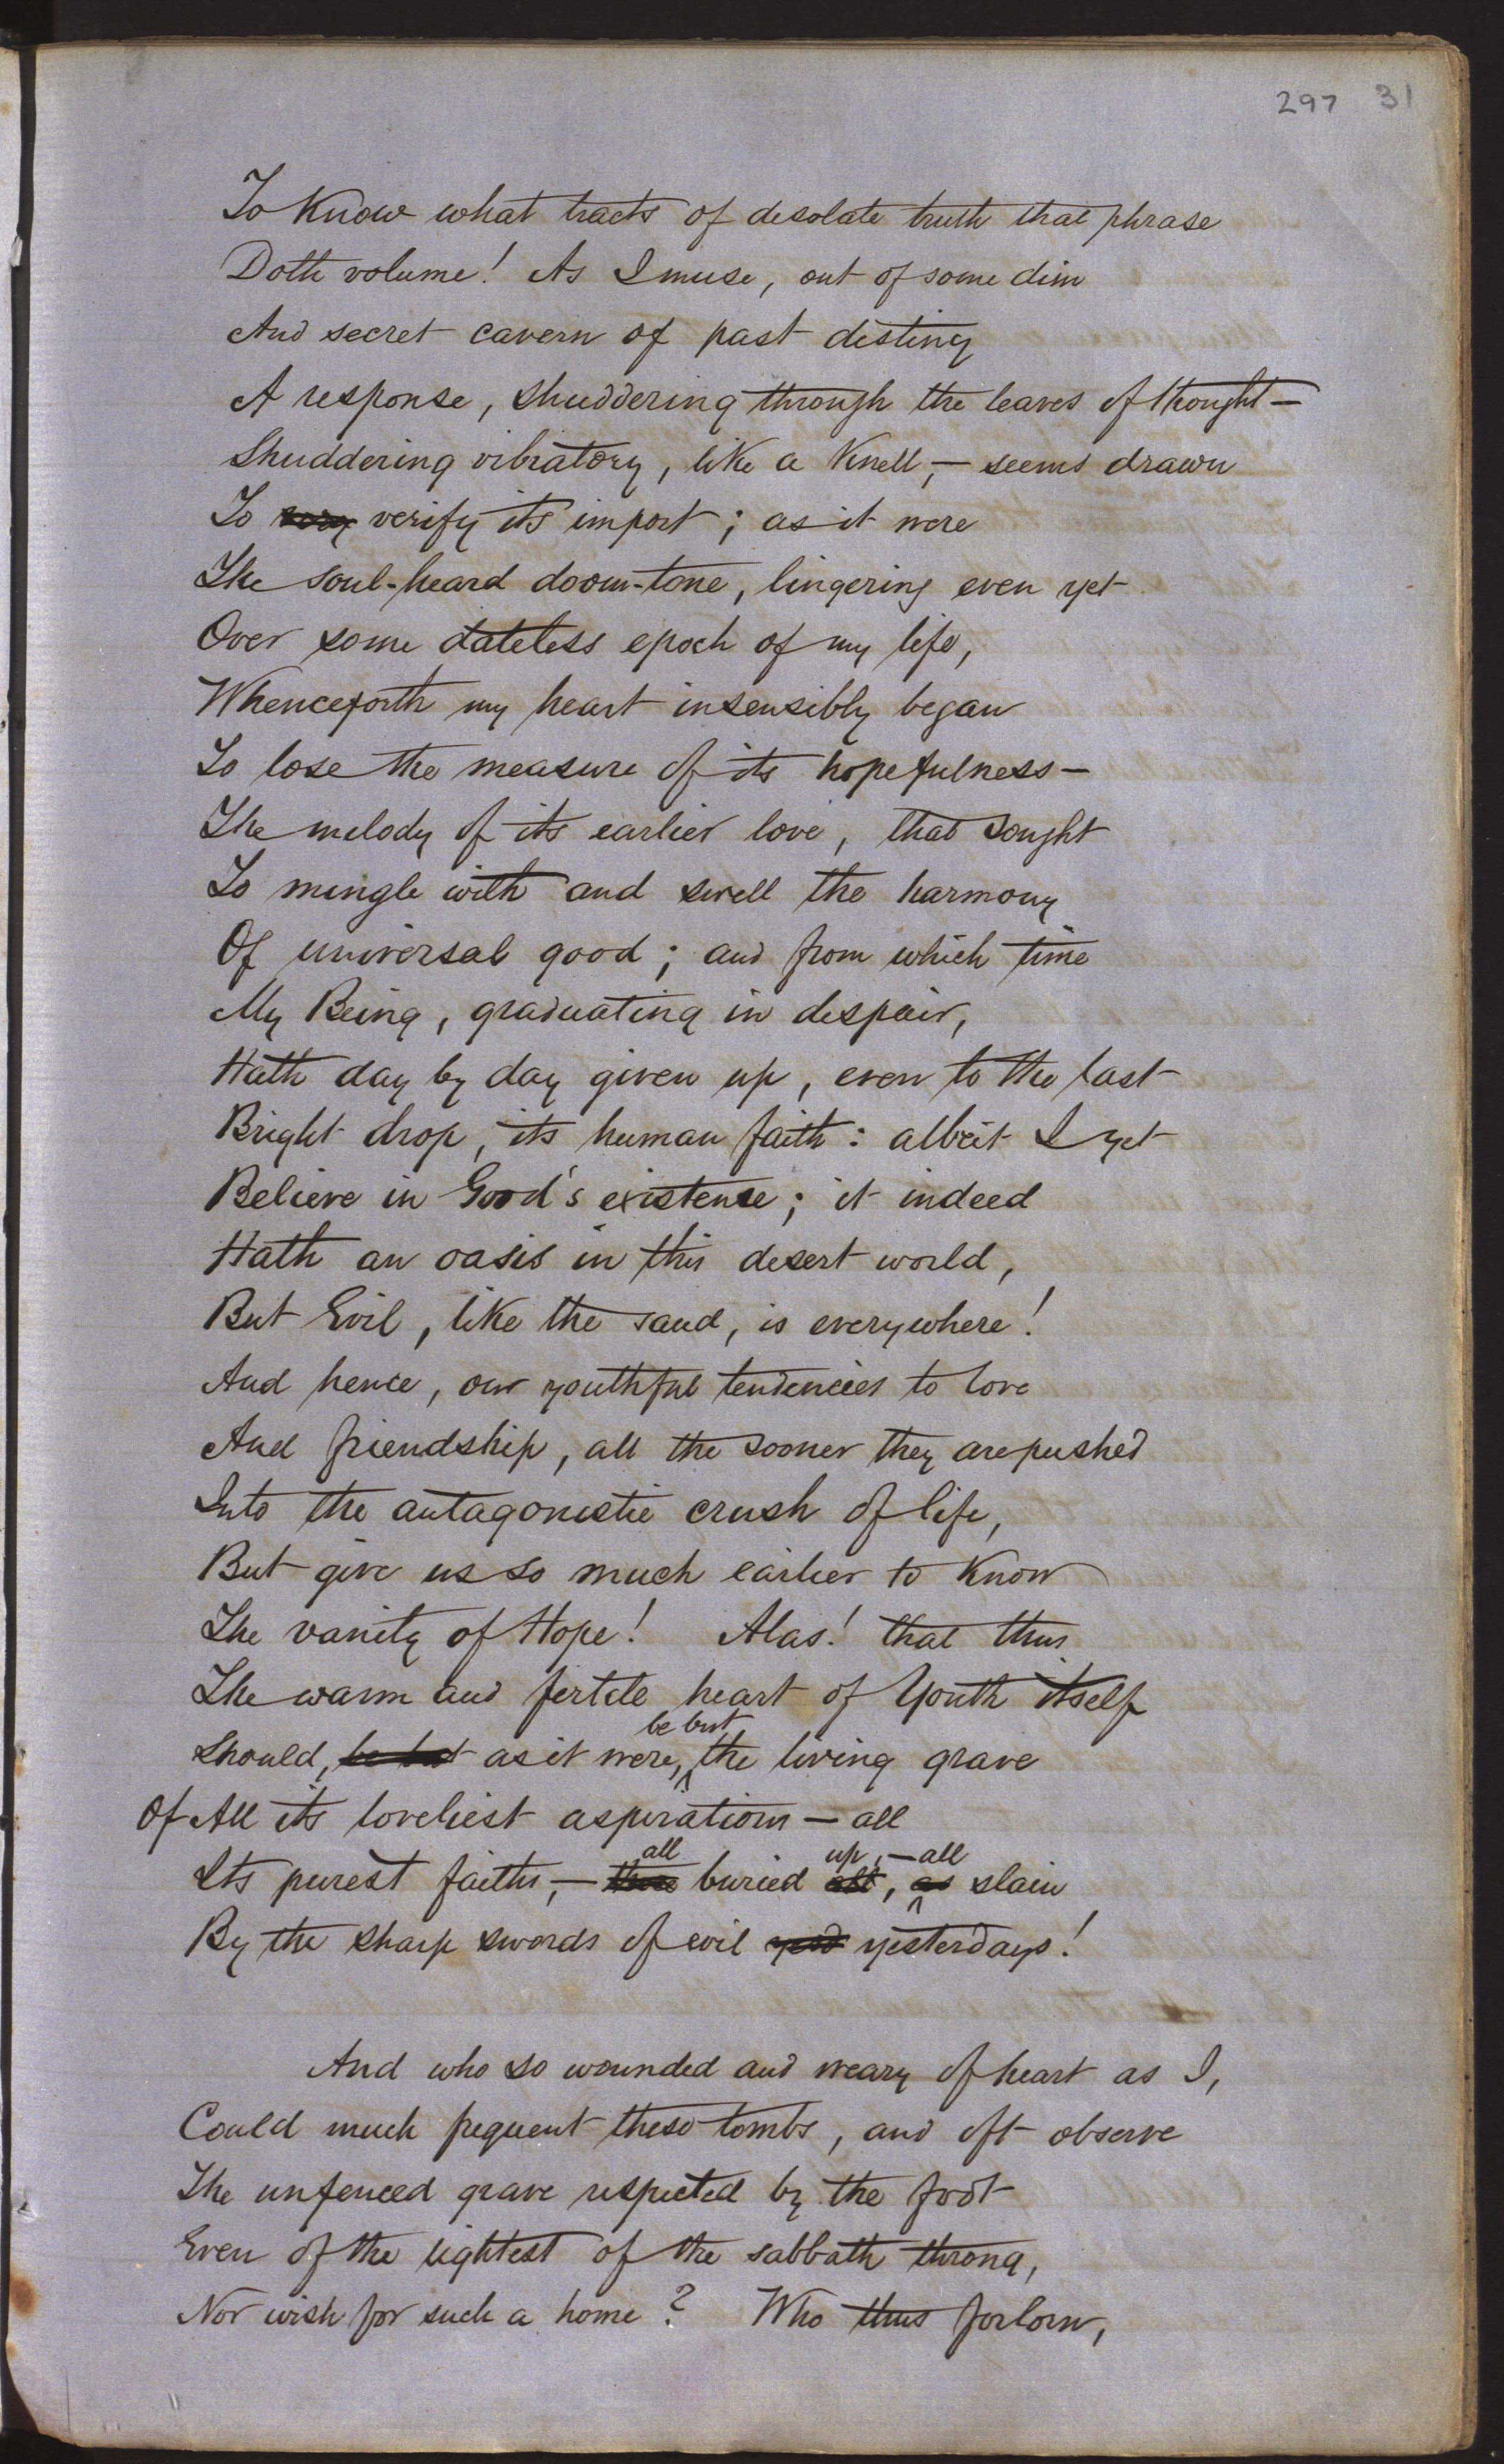 297 31
To Know what tracts of desolate truth that phrase
Doth volume! As I muse, out of some dim
And secret cavern of past destiny
A response, shuddering through the leaves of thought—
Shuddering vibratory, like a Knell,— seems drawn
To verify its import; as it were
The soul-heard doom-tone, lingering even yet
Over some dateless epoch of my life,
Whenceforth my heart insensibly began
To lose the measure of its hopefulness—
The melody of its earlier love, that sought
To mingle with and swell the harmony
Of universal good; and from which time
My Being, graduating in despair,
Hath day by day given up, even to the last
Bright drop, its human faith: albeit I yet
Believe in Good's existence; it indeed
Hath an oasis in this desert world,
But Evil, like the sand, is everywhere!
And hence, our youthful tendencies to love
And friendship, all the sooner they are pushed
Into the antagonistic crush of life,
But give us so much earlier to Know
The vanity of Hope! Alas! that thus
The warm and fertile heart of Youth itself
Should, be but as it were, be but the living grave
Of All its loveliest aspirations — all
Its purest faiths,— all buried up,— all slain
By the sharp swords of evil yesterdays!
And who so wounded and weary of heart as I,
Could much frequent these tombs, and oft observe
The unfenced grave respected by the foot
Even of the lightest of the sabbath throng,
Nor wish for such a home? Who thus forlorn,